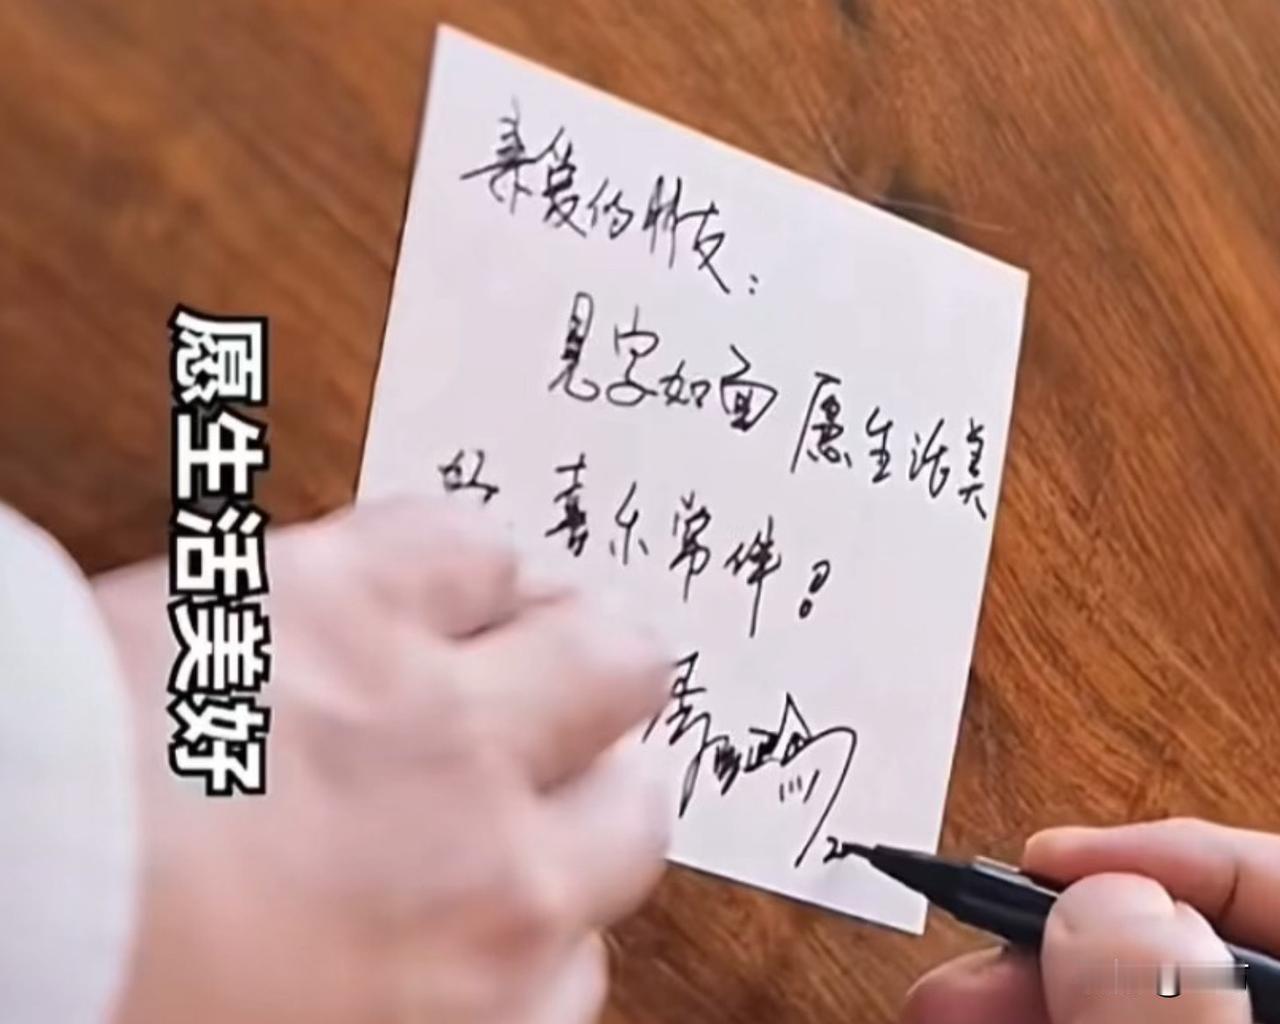 愿生活美好
亲爱的朋友:
见字如面 愿生活美
好 喜乐常伴!
周
20